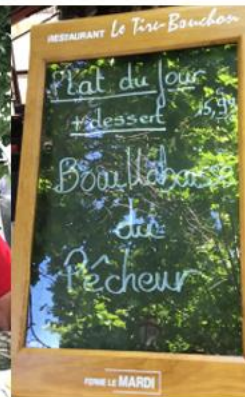 RESTAURANT Le Tire-Bouchon
Plat du Jour
+ dessert
Bouillabaisse
du
Pêcheur
FERMÉ LE MARDI